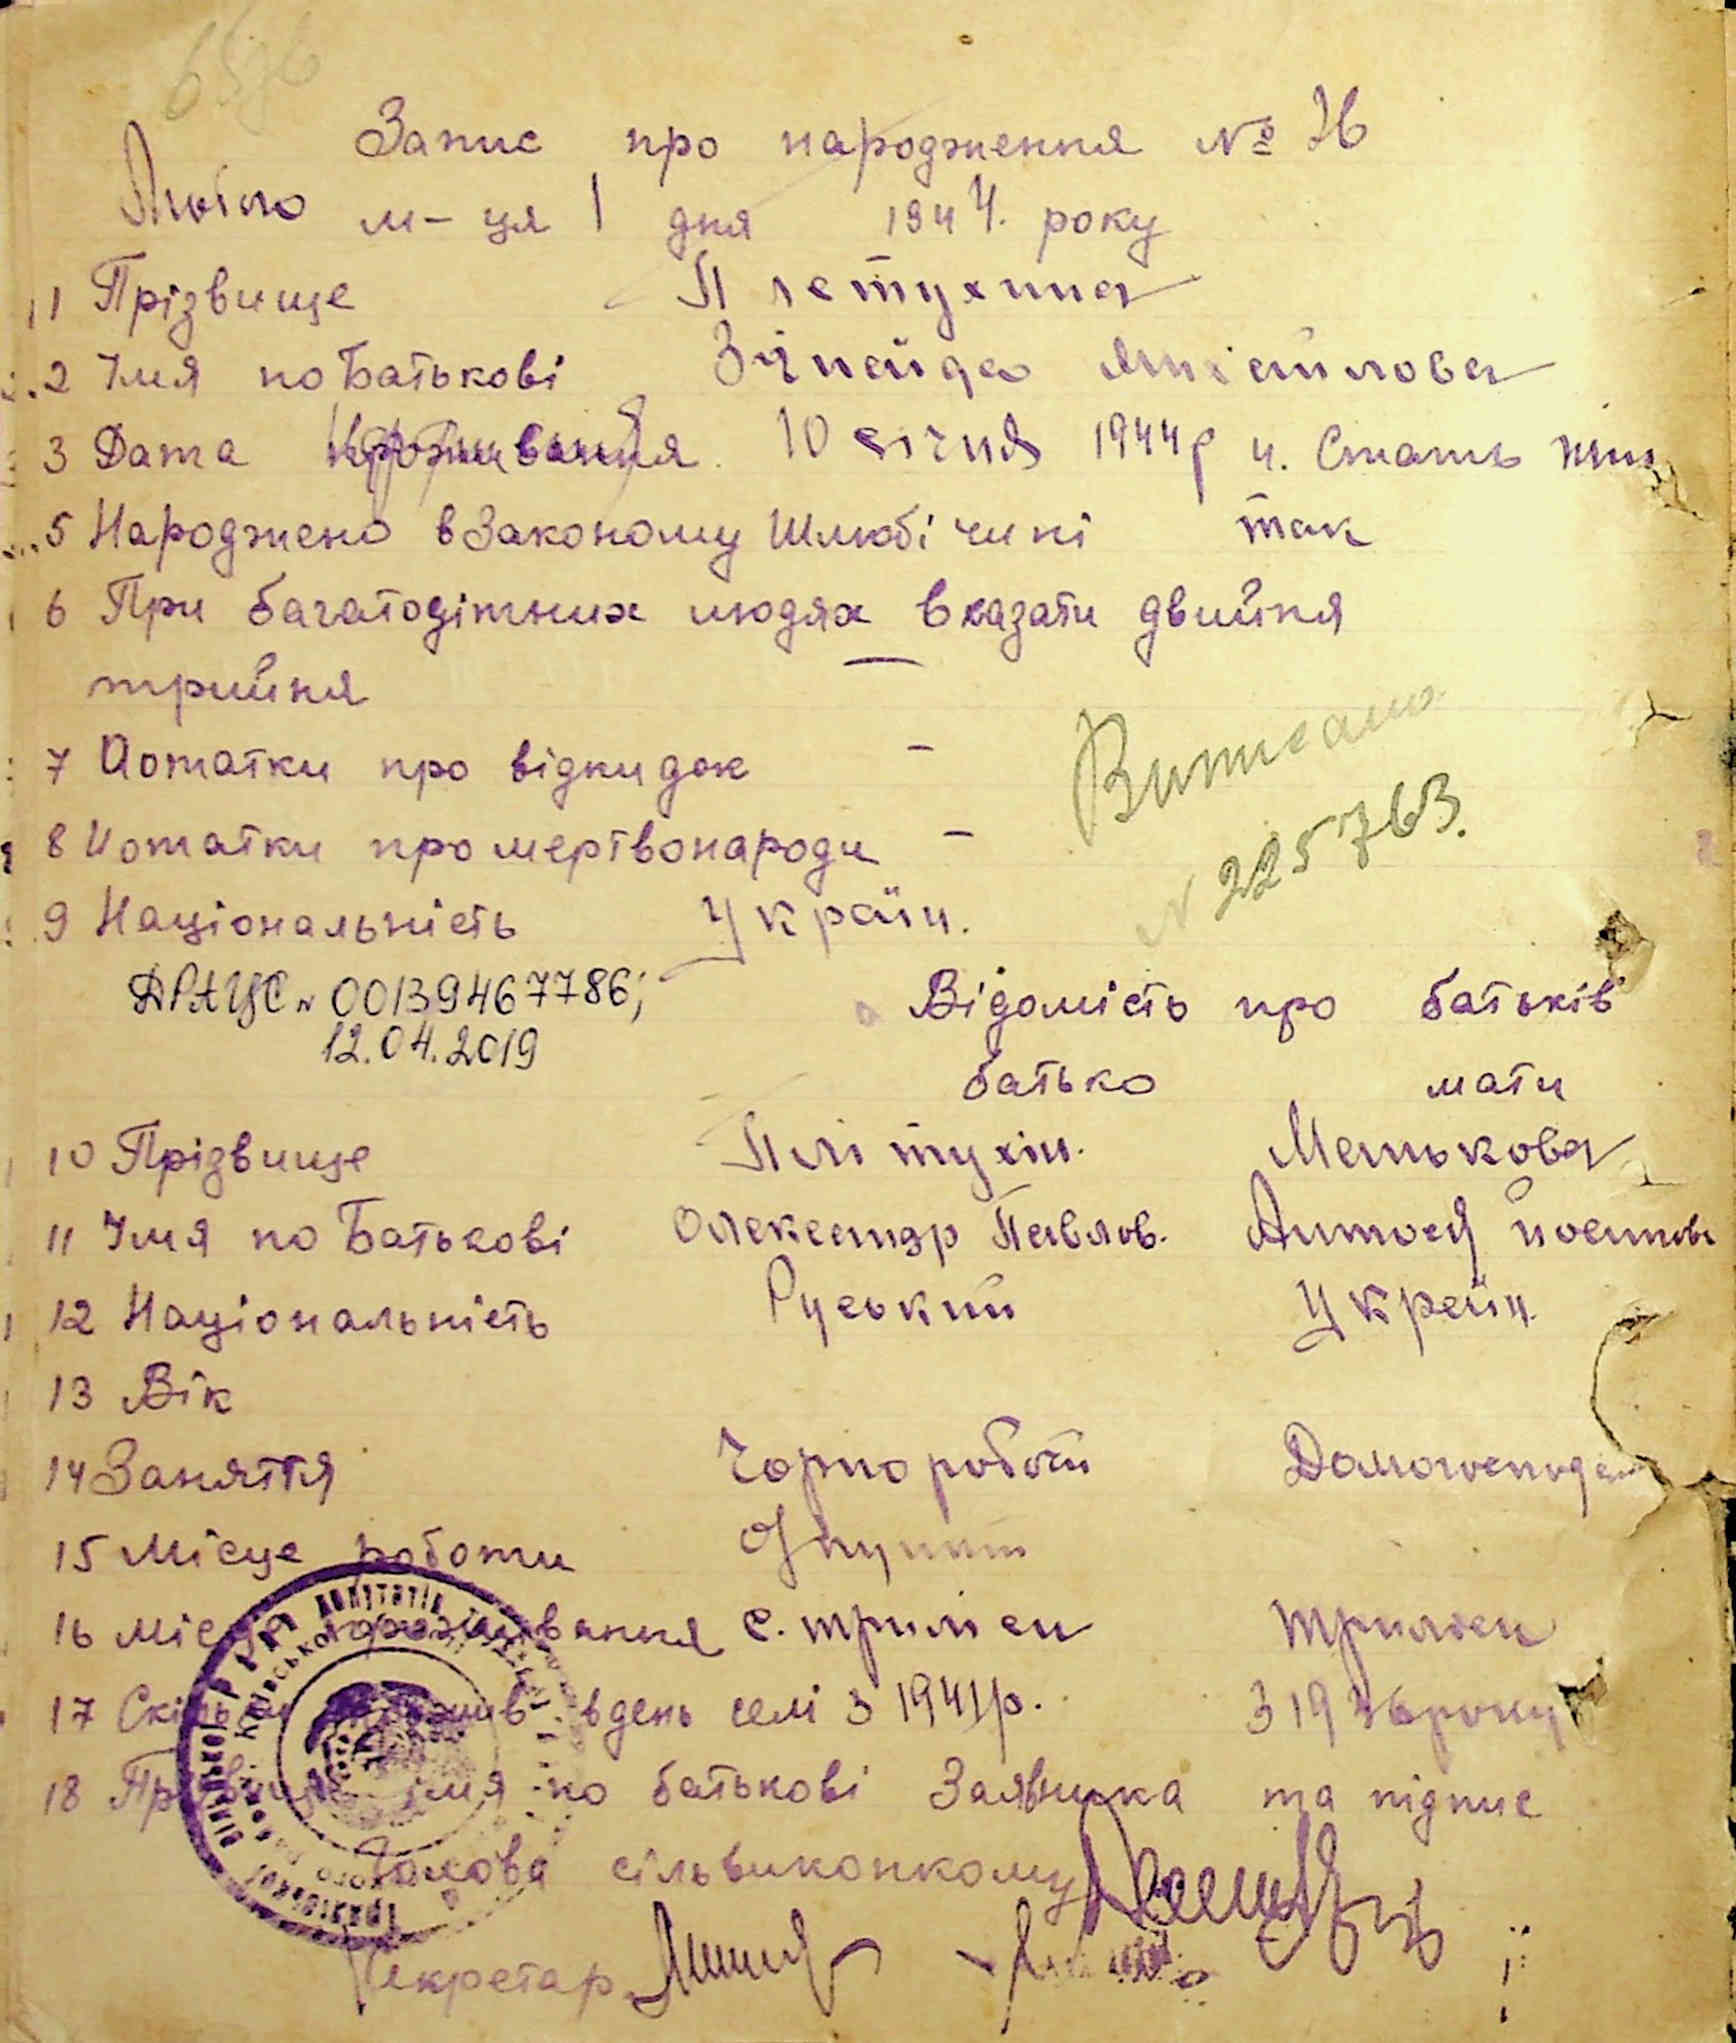 6576
Запис про народження № 26
Лютого м-ця 1 дня 1944. року
1 Прізвище Плетухина
2 Імя по Батькові Зінаида Михайлова
3 Дата 10 січня 1944р 4. Стать жін
5 Народжено в Законому Шлюбі чи ні так
6 При багатодітних людях вказати двийня
трийня —
7 Нотатки про відкидок —
8 Нотатки про мертвонароди —
Виписано
№ 225763.
9 Національність Україн.
ДРАЦС № 00139467786;
12.04.2019
Відомість про батьків
батько мати
10 Прізвище Плітухін. Менькова
11 Імя по Батькові Олександр Павлов. Антося
12 Національність Руський Україн.
13 Вік
14 Заняття Чорноробочий
15 Місце роботи
16 Місце проживання с. Триліси Триліси
17 Скільки прожив в день селі з 1941р. з 1926 року
18 Прізвище імя по батькові Заявника та підпис
Голова сільвиконкому
Секретар